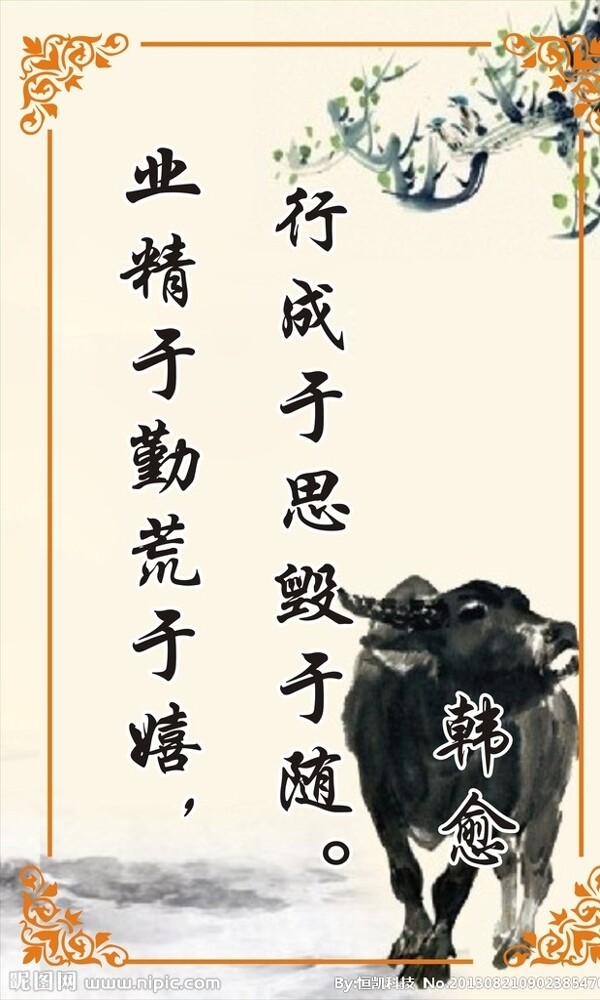 业精于勤荒于嬉，
行成于思毁于随。
韩愈
昵图网 www.nipic.com
By:恒凯科技 No.201308210902385470